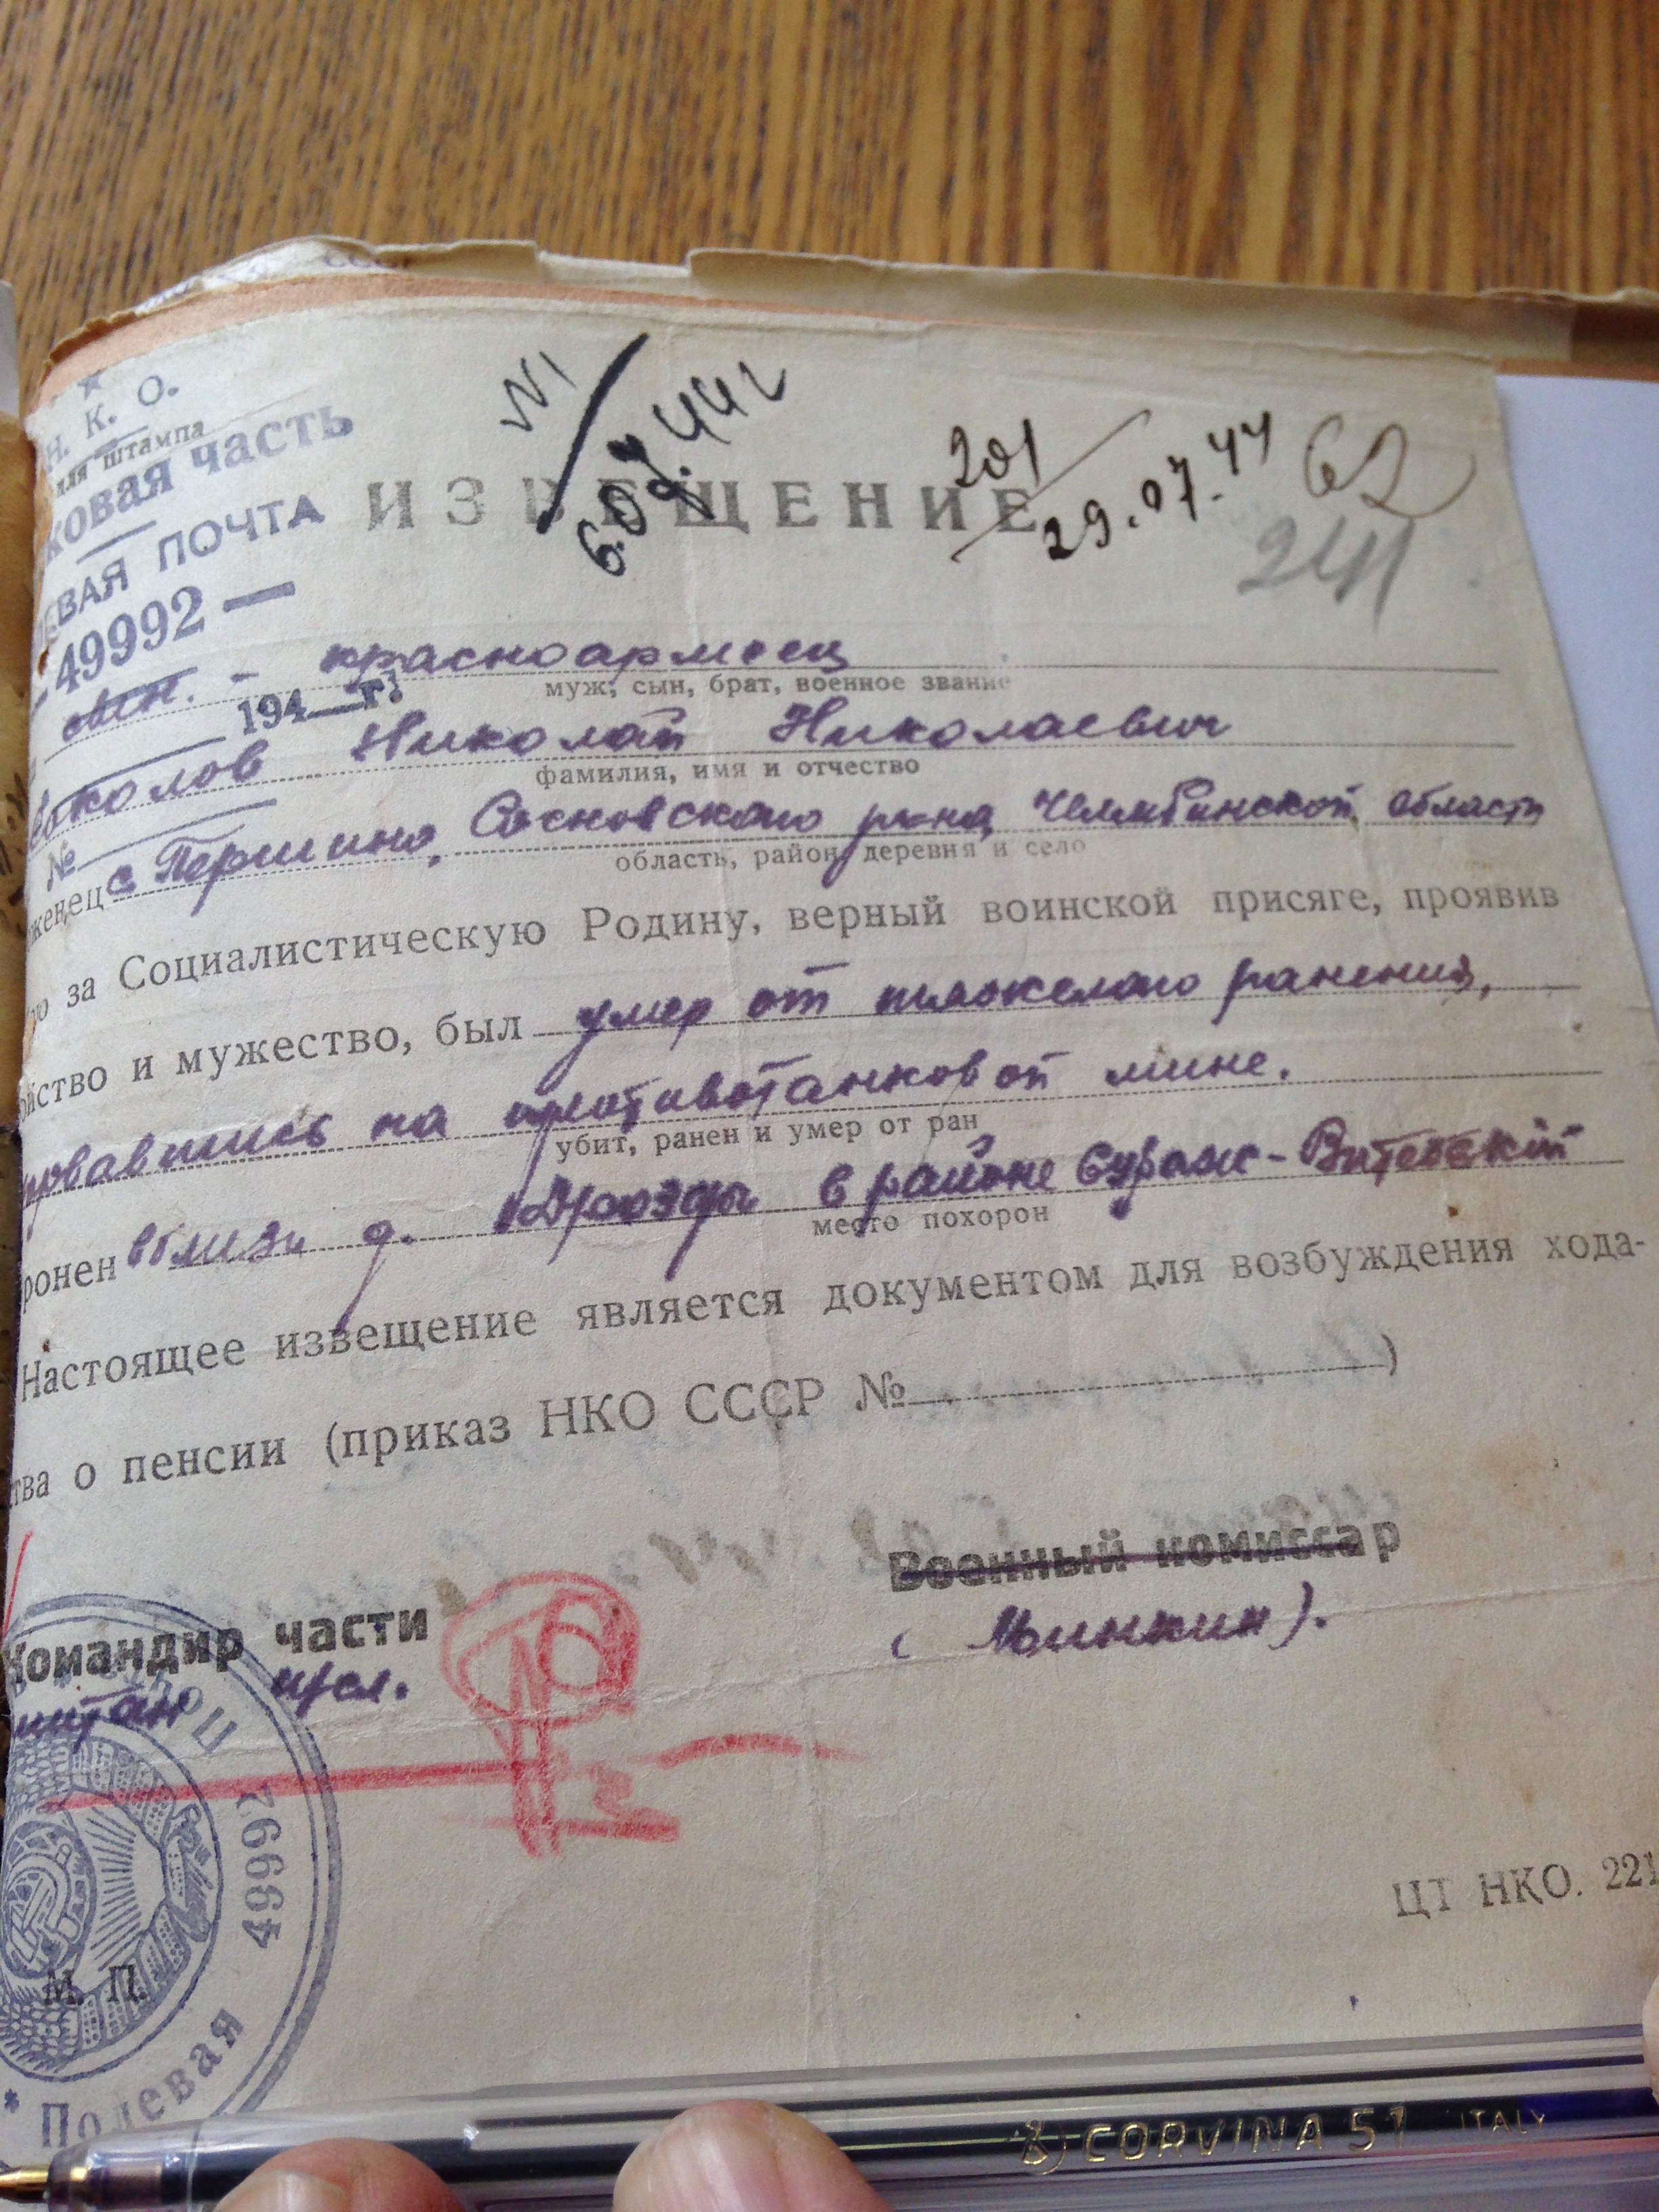 Н. К. О.
для штампа
ковая часть
ЕВАЯ ПОЧТА
49992 —
194 г.
№
№1
6.07.44г
201
29.07.44
62
241
ИЗВЕЩЕНИЕ
сын. - красноармеец
муж, сын, брат, военное звание
Соколов Николай Николаевич
фамилия, имя и отчество
женец с. Першино, Сосновского р-на, Челябинской области
область, район, деревня и село
за Социалистическую Родину, верный воинской присяге, проявив
йство и мужество, был умер от тяжелого ранения,
рвавшись на противотанковой мине.
убит, ранен и умер от ран
ронен вблизи д. Дрозды в районе Сураж-Витебский
место похорон
Настоящее извещение является документом для возбуждения хода-
тва о пенсии (приказ НКО СССР № )
Командир части
Военный комиссар
питан
(Минкин).
М. П.
49992
* Полевая
ЦТ НКО. 221
CORVINA 51 ITALY